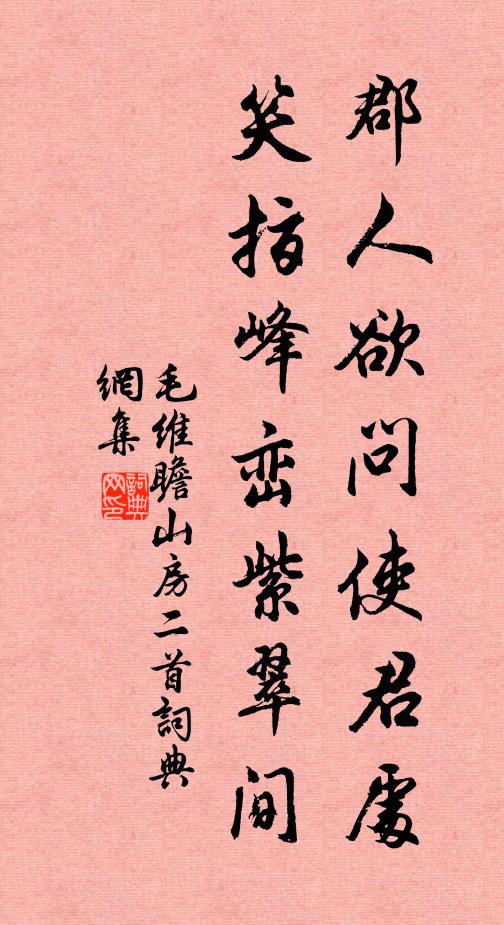 郡人欲问使君處
笑指峰峦紫翠间
毛維瞻山房二首詞典
網集
詞典
网印